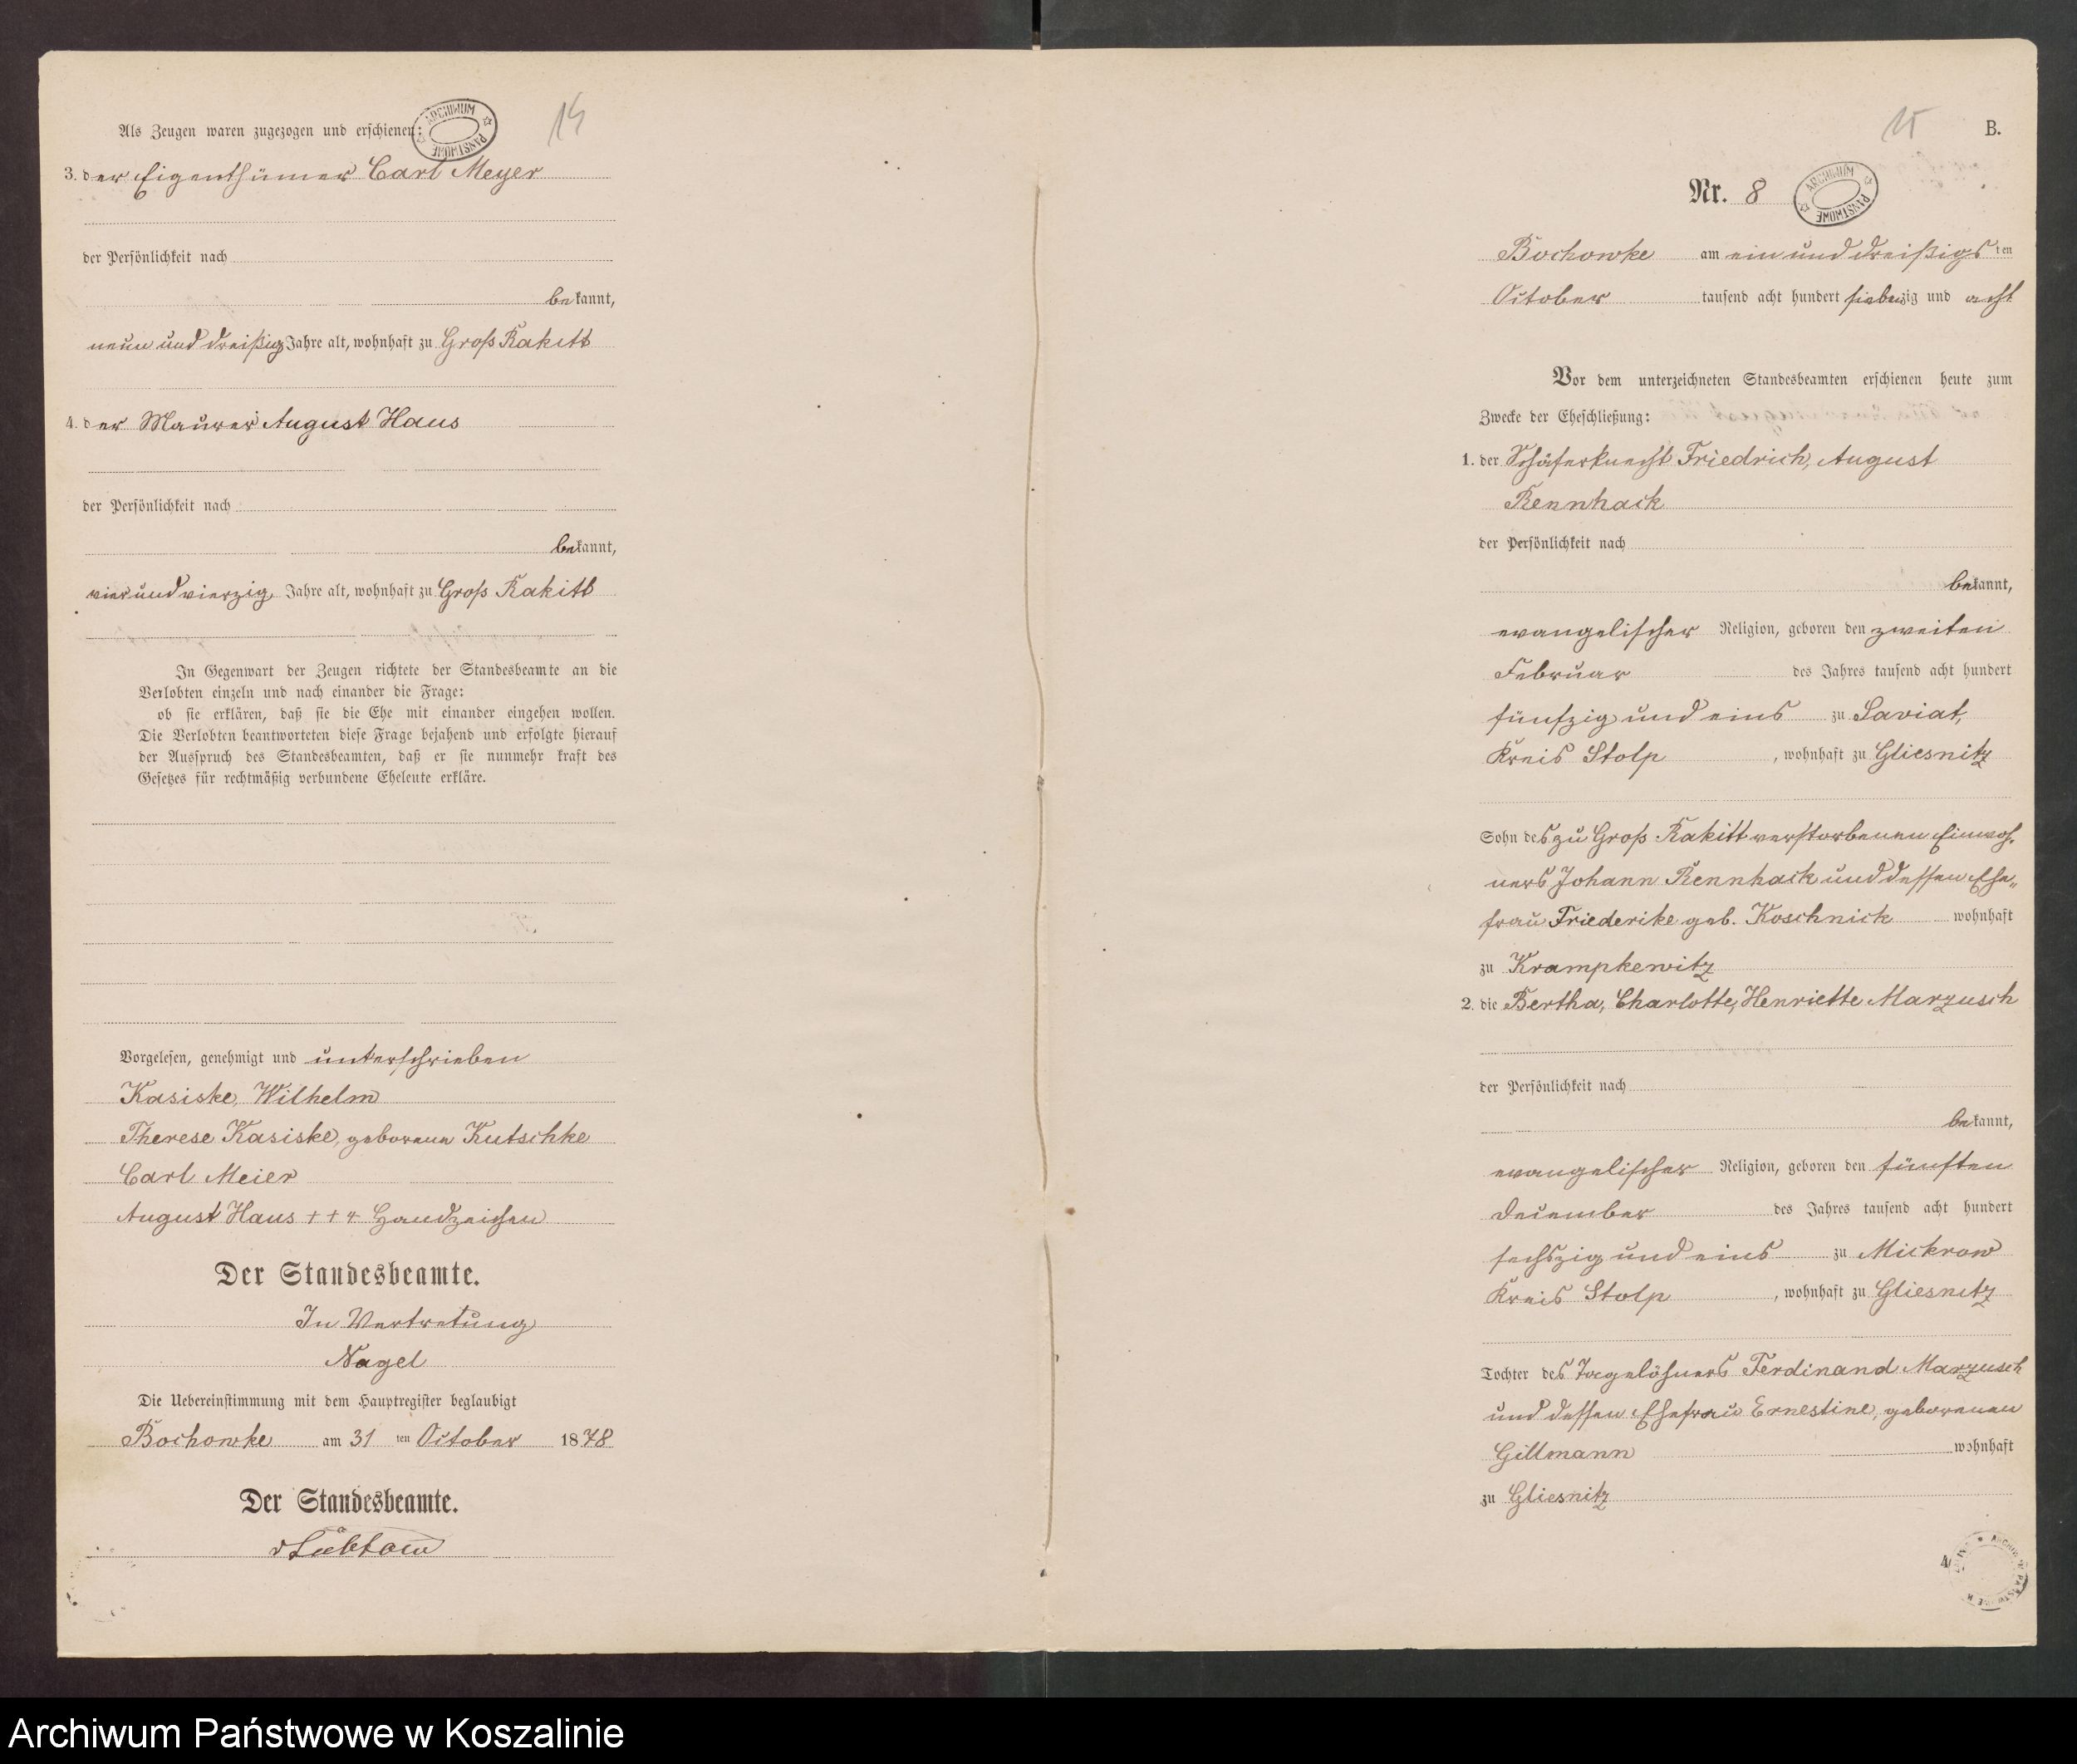 Als Zeugen waren zugezogen und erschienen:
14
3. der Eigenthümer Carl Meyer
der Persönlichkeit nach
bekannt,
neun und dreißig Jahre alt, wohnhaft zu Groß Rakitt
4. der Maurer August Haus
der Persönlichkeit nach
bekannt,
vier und vierzig Jahre alt, wohnhaft zu Groß Rakitt
In Gegenwart der Zeugen richtete der Standesbeamte an die
Verlobten einzeln und nach einander die Frage:
ob sie erklären, daß sie die Ehe mit einander eingehen wollen.
Die Verlobten beantworteten diese Frage bejahend und erfolgte hierauf
der Ausspruch des Standesbeamten, daß er sie nunmehr kraft des
Gesetzes für rechtmäßig verbundene Eheleute erkläre.
Vorgelesen, genehmigt und unterschrieben
Kasiske, Wilhelm
Therese Kasiske, geborene Kutschke
Carl Meier
August Haus +++ Handzeichen
Der Standesbeamte.
In Vertretung
Nagel
Die Uebereinstimmung mit dem Hauptregister beglaubigt
Bochowke am 31 ten October 1878
Der Standesbeamte.
15
B.
Nr. 8
ARCHIWUM PAŃSTWOWE
Bochowke am ein und dreißigsten
October tausend acht hundert siebenzig und acht
Vor dem unterzeichneten Standesbeamten erschienen heute zum
Zwecke der Eheschließung:
1. der Schäferknecht Friedrich, August
Rennhack
der Persönlichkeit nach
bekannt,
evangelischer Religion, geboren den zweiten
Februar des Jahres tausend acht hundert
fünfzig und eins zu Saviat,
Kreis Stolp, wohnhaft zu Gliesnitz
Sohn des zu Groß Rakitt verstorbenen Einwoh-
ners Johann Rennhack und dessen Ehe-
frau Friederike geb. Koschnick wohnhaft
zu Krampkewitz
2. die Bertha, Charlotte, Henriette Marzusch
der Persönlichkeit nach
bekannt,
evangelischer Religion, geboren den fünften
December des Jahres tausend acht hundert
sechszig und eins zu Mickrow
Kreis Stolp, wohnhaft zu Gliesnitz
Tochter des Tagelöhners Ferdinand Marzusch
und dessen Ehefrau Ernestine, geborenen
Gillmann wohnhaft
zu Gliesnitz
Archiwum Państwowe w Koszalinie